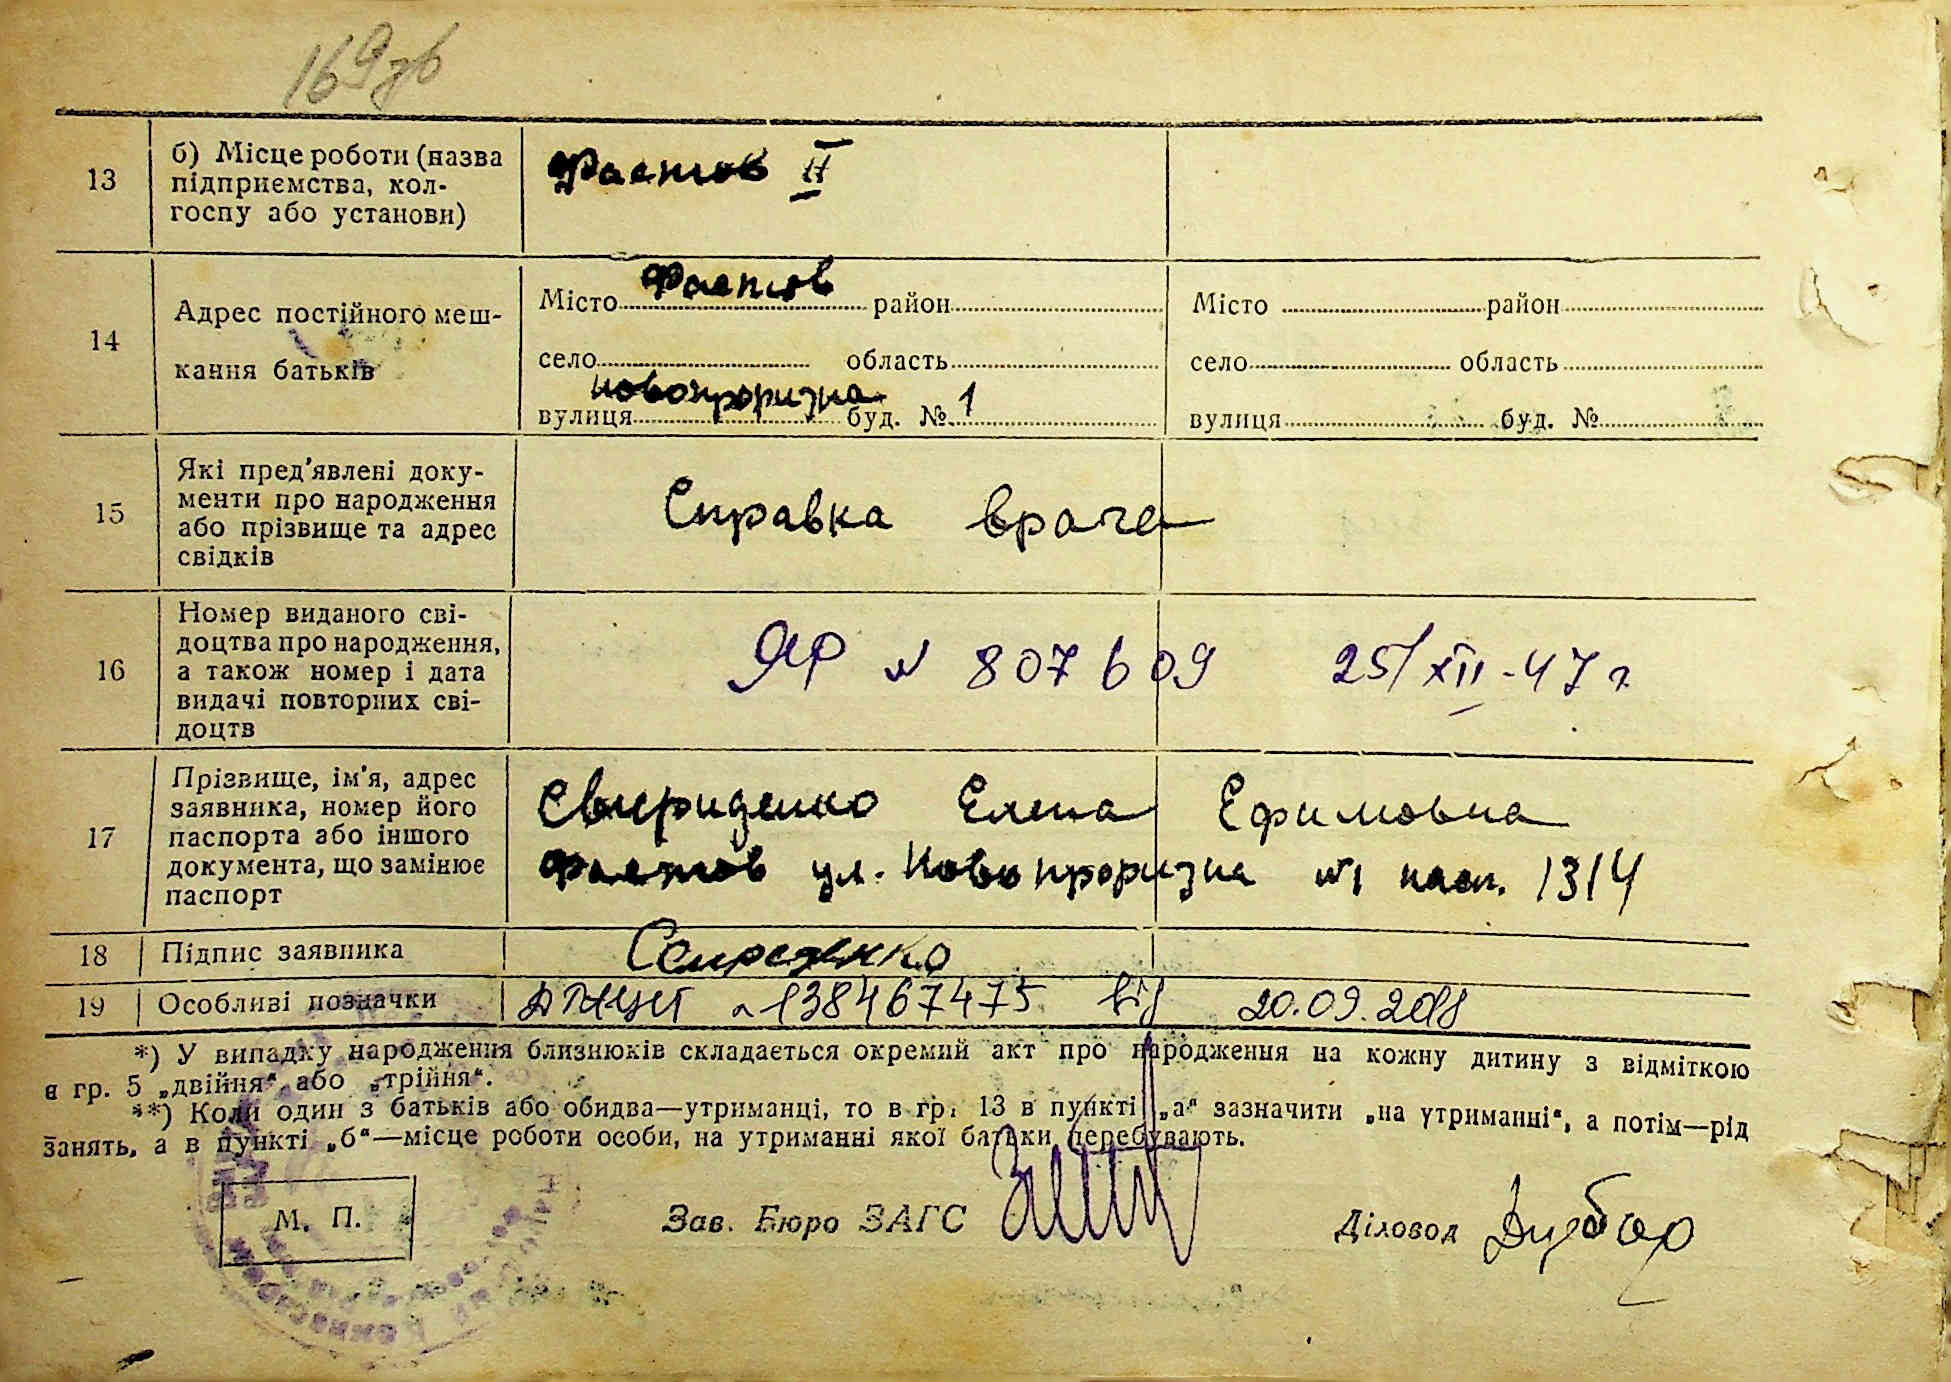 169 зв
13 б) Місце роботи (назва підприємства, кол-
госпу або установи)
Фастов II
14 Адрес постійного меш-
кання батьків
Місто Фастов район Місто район
село область село область
вулиця Новопроризна буд. № 1 вулиця буд. №
15 Які пред'явлені доку-
менти про народження
або прізвище та адрес
свідків
Справка врача
16 Номер виданого сві-
доцтва про народження,
а також номер і дата
видачі повторних сві-
доцтв
ЯР № 807609 25/XII-47 г
17 Прізвище, ім'я, адрес
заявника, номер його
паспорта або іншого
документа, що замінює
паспорт
Свириденко Елена Ефимовна
Фастов ул. Новопроризна №1 пасп. 1314
18 Підпис заявника
19 Особливі позначки
№ 138467475 від 20.09.2018
*) У випадку народження близнюків складається окремий акт про народження на кожну дитину з відміткою
в гр. 5 „двійня“ або „трійня“.
**) Коли один з батьків або обидва—утриманці, то в гр. 13 в пункті „а“ зазначити „на утриманні“, а потім—рід
занять, а в пункті „б“—місце роботи особи, на утриманні якої батьки перебувають.
М. П. Зав. Бюро ЗАГС Діловод